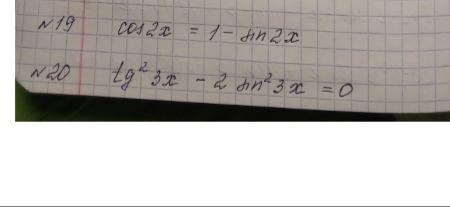 №19 cos2x = 1 - sin2x
№20 tg² 3x - 2 sin² 3x = 0